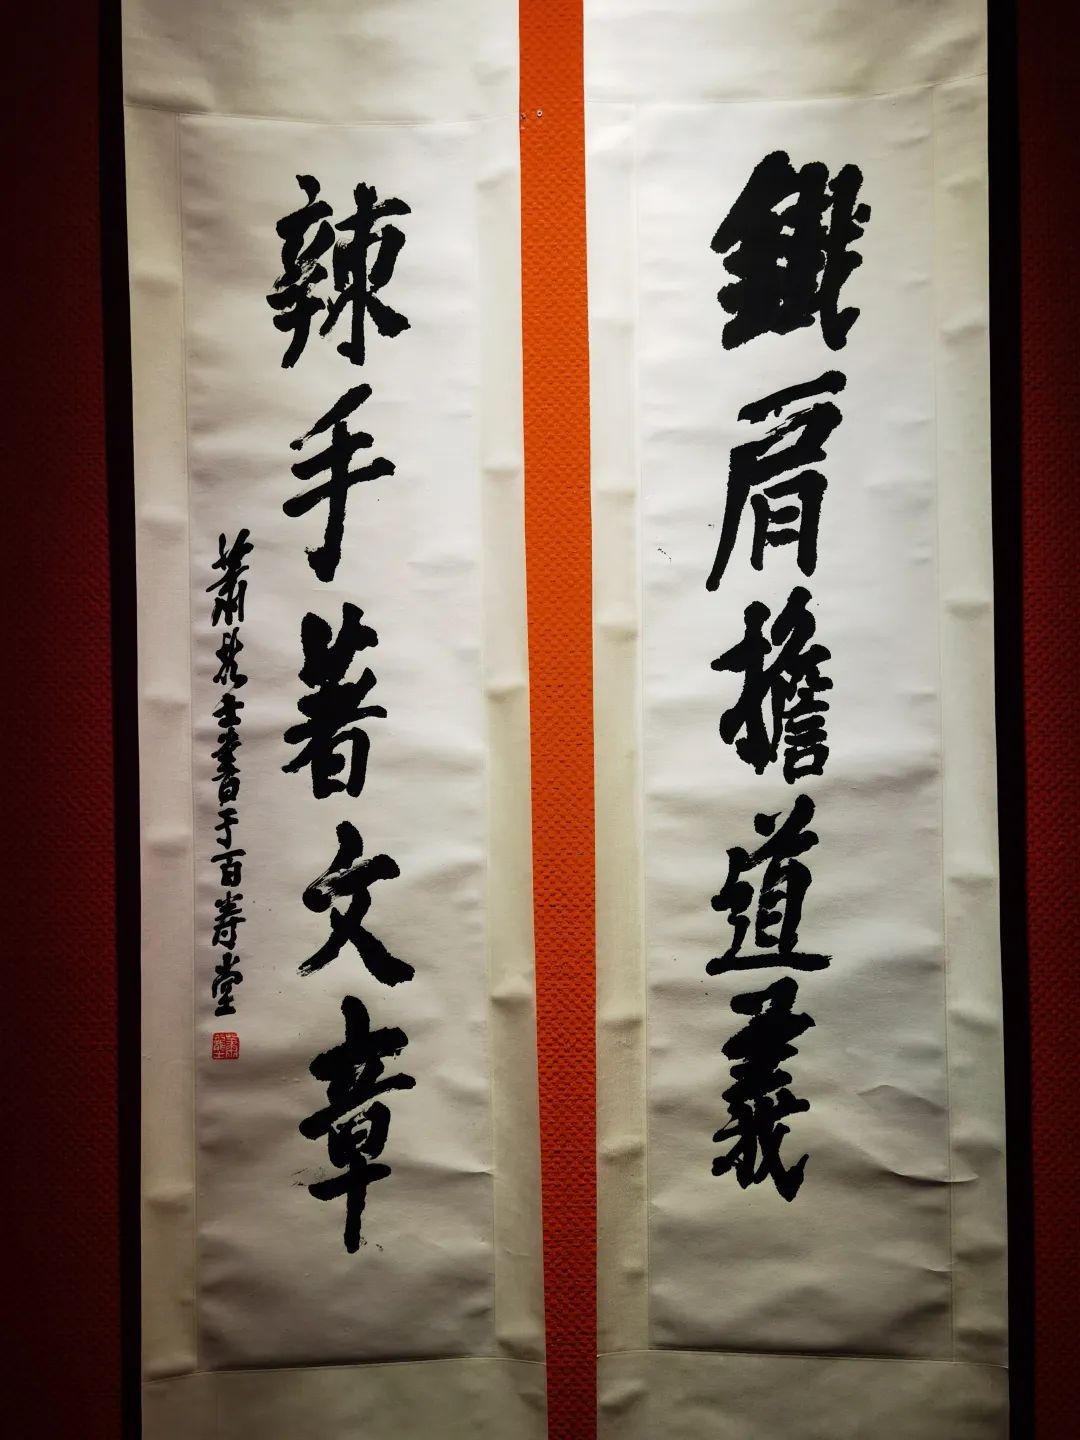 鐵肩擔道義
辣手著文章
蕭龍士書于百壽堂